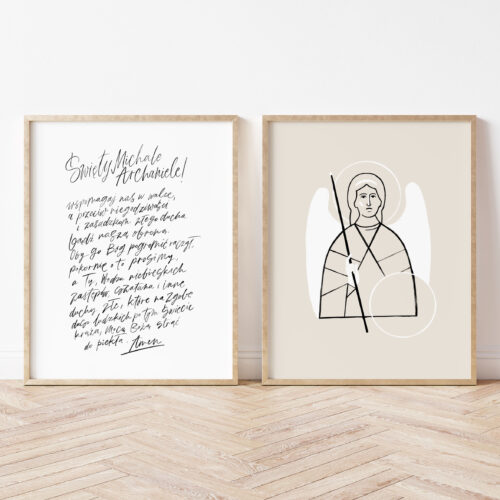 Święty Michale
Archaniele!
wspomagaj nas w walce,
a przeciw niegodziwości
i zasadzkom złego ducha
bądź naszą obroną.
Oby go Bóg pogromić raczył,
pokornie o to prosimy,
a Ty, Wodzu niebieskich
zastępów, szatana i inne
duchy złe, które na zgubę
dusz ludzkich po tym świecie
krążą, mocą Bożą strąć
do piekła. Amen.